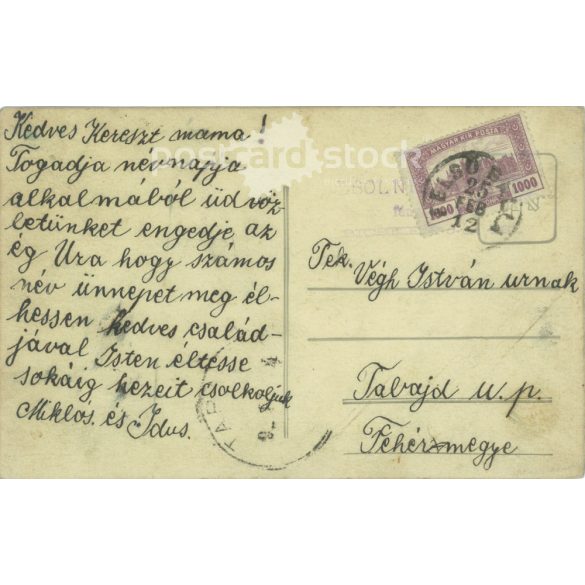 Kedves Kereszt mama!
Fogadja névnapja
alkalmából üdvöz
letünket engedje az
ég Ura hogy számos
név ünnepet meg él-
hessen kedves család-
jával Isten éltesse
sokáig kezeit csolkoljuk
Miklós. és Idus.
postcard stock
MAGYAR KIR. POSTA
1000
1000
ELSŐ
25
FEB
12
Tek.
Végh István urnak
Tabajd u. p.
Fehérmegye